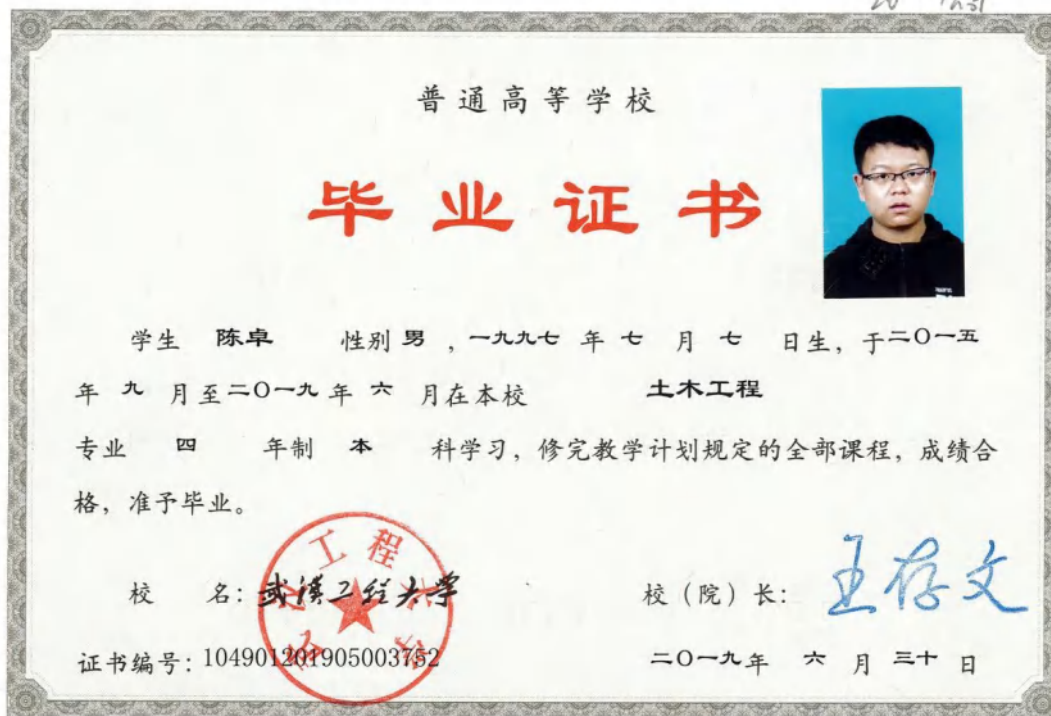 普通高等学校
毕业证书
学生 陈卓 性别 男 , 一九九七 年 七 月 七 日生, 于二〇一五
年 九 月至二〇一九 年 六 月在本校 土木工程
专业 四 年制 本 科学习, 修完教学计划规定的全部课程, 成绩合
格, 准予毕业。
工程
校 名: 武漢工程大学 校(院)长: 王存文
证书编号: 104901201905003752 二〇一九年 六 月 三十 日